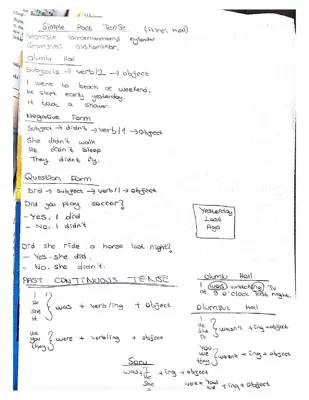 Simple Past Tense (II.hal)
Geçmişte tamamlanmış eylemler
Geçmişteki
Olumlu Hali
Subjects → verb12 → object
I went to beach at weekend.
He slept early yesterday.
It took a shower.
Negative Form
Subject → didn't → verb/1 → object
She didn't walk
He didn't sleep
They didn't fly.
Question Form
Did → subject → verb/1 → object
Did you play soccer?
- Yes, I did
- No, I didn't
Yesterday
Last
Ago
Did she ride a horse last night?
- Yes she did.
- No, she didn't.
PAST CONTINUOUS TENSE
I
He
She
It
was + verb/ing + object
We
You
They
were + verb/ing + object
Olumlu Hali
I was watching TV
9 o'clock last night.
Olumsuz Hali
I
He
She
It
wasn't + ing + object
You
We
They
weren't + ing + object
Soru
Was
I
He
She
+ ing + object
were
you
we
+ ing + object